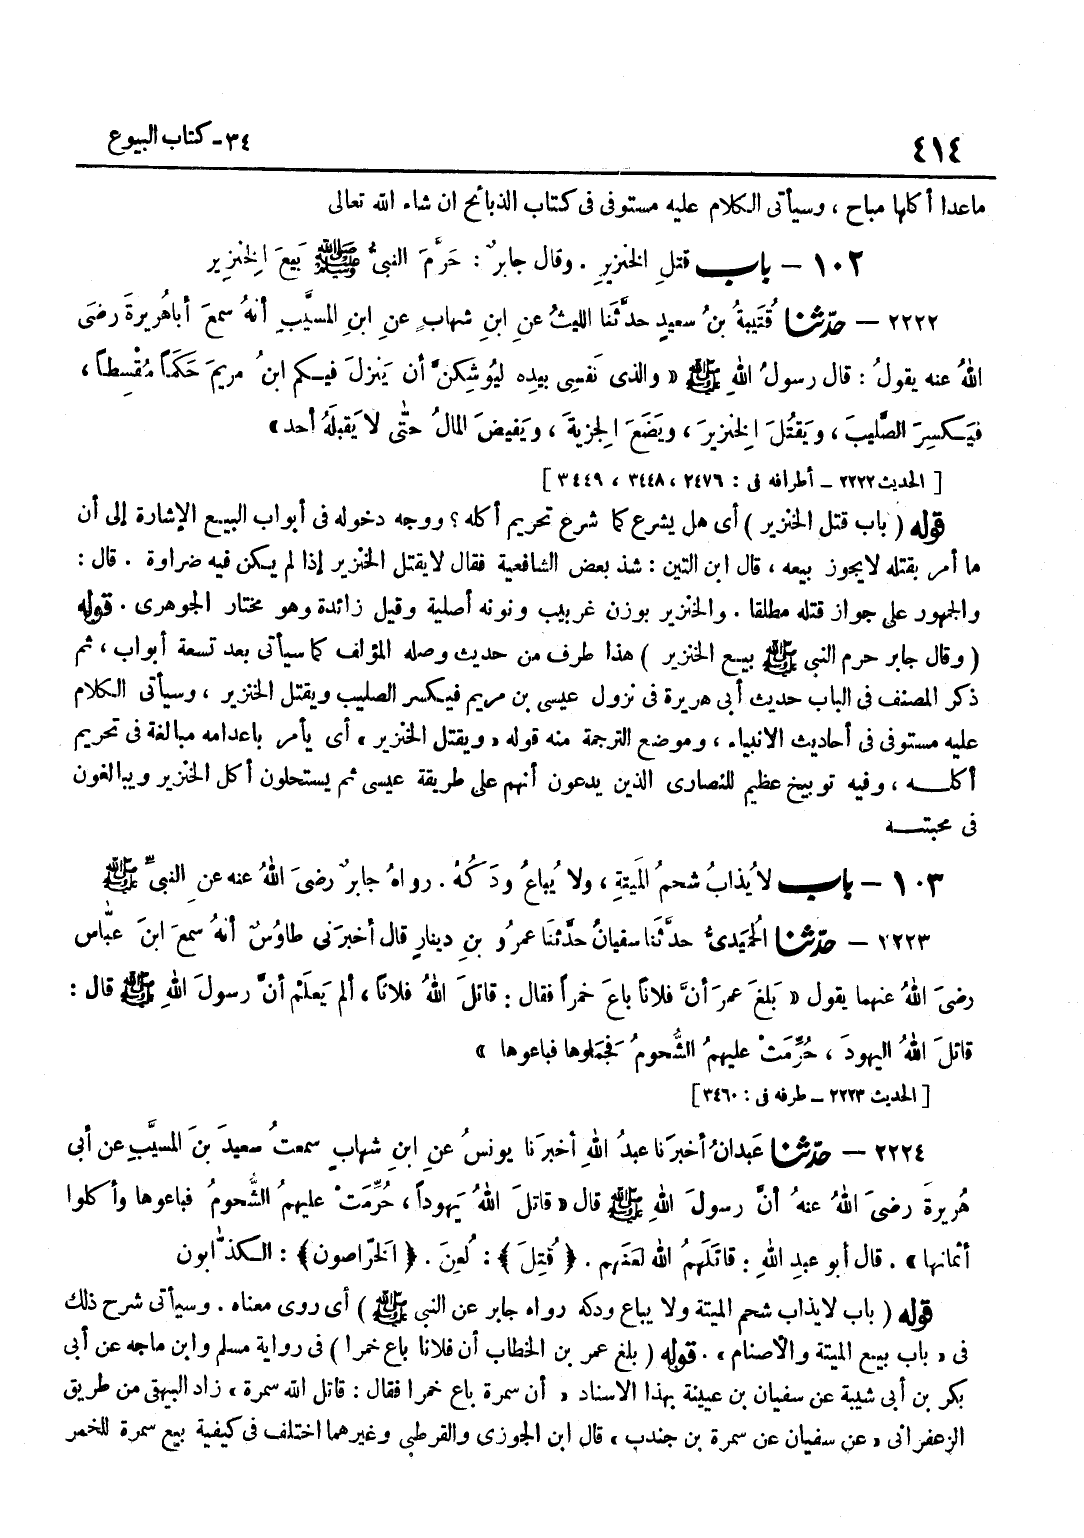 ٤١٤
٣٤ - كتاب البيوع
ماعدا أكلها مباح ، وسيأتى الكلام عليه مستوفى فى كتاب الذبائح ان شاء الله تعالى
١٠٢ - باب قتلِ الخنزيرِ . وقال جابرٌ : حَرَّمَ النبىُّ ﷺ بَيعَ الخِنزيرِ
٢٢٢٢ - حدّثنا قُتَيبةُ بنُ سعيدٍ حدَّثَنا الليثُ عنِ ابنِ شهابٍ عنِ ابنِ المسيَّبِ أنهُ سمعَ أباهُريرةَ رضىَ
اللهُ عنه يقولُ : قال رسولُ اللهِ ﷺ « والذى نَفسِى بيدِه ليُوشِكنَّ أن يَنزِلَ فيكم ابنُ مريمَ حَكَماً مُقْسِطاً ،
فيَكسِرَ الصَّليبَ ، ويَقتُلَ الخِنزيرَ ، ويَضَعَ الجِزيةَ ، ويَفيضَ المالُ حتّى لا يَقبلَهُ أحد »
[ الحديث ٢٢٢٢ - أطرافه فى : ٢٤٧٦ ، ٣٤٤٨ ، ٣٤٤٩ ]
قوله ( باب قتل الخنزير ) أى هل يشرع كما شرع تحريم أكله ؟ ووجه دخوله فى أبواب البيع الإشارة إلى أن
ما أمر بقتله لايجوز بيعه ، قال ابن التين : شذ بعض الشافعية فقال لايقتل الخنزير إذا لم يكن فيه ضراوة . قال :
والجمهور على جواز قتله مطلقا . والخنزير بوزن غربيب ونونه أصلية وقيل زائدة وهو مختار الجوهرى . قوله
( وقال جابر حرم النبى ﷺ بيع الخنزير ) هذا طرف من حديث وصله المؤلف كما سيأتى بعد تسعة أبواب ، ثم
ذكر المصنف فى الباب حديث أبى هريرة فى نزول عيسى بن مريم فيكسر الصليب ويقتل الخنزير ، وسيأتى الكلام
عليه مستوفى فى أحاديث الانبياء ، وموضع الترجمة منه قوله « ويقتل الخنزير » أى يأمر باعدامه مبالغة فى تحريم
أكلـــه ، وفيه توبيخ عظيم للنصارى الذين يدعون أنهم على طريقة عيسى ثم يستحلون أكل الخنزير ويبالغون
فى محبتـــه
١٠٣ - باب لا يُذابُ شحمُ الميْتةِ ، ولا يُباعُ ودَكُهُ . رواهُ جابرٌ رضىَ اللهُ عنه عنِ النبىِّ ﷺ
٢٢٢٣ - حدّثنا الحُمَيدىُّ حدَّثَنا سفيانُ حدَّثَنا عمرُو بنِ دينارٍ قال أخبرَنى طاوُسٌ أنهُ سمعَ ابنَ عبّاس
رضىَ اللهُ عنهما يقول « بَلغَ عمرَ أنَّ فلاناً باعَ خمراً فقال : قاتلَ اللهُ فلاناً ، ألم يَعلَمْ أنَّ رسولَ اللهِ ﷺ قال :
قاتلَ اللهُ اليهودَ ، حُرِّمَتْ عليهمُ الشُّحومُ فَجَمَلوها فباعوها »
[ الحديث ٢٢٢٣ - طرفه فى : ٣٤٦٠ ]
٢٢٢٤ - حدّثنا عَبدانُ أخبرَنا عبدُ اللهِ أخبرَنا يونسُ عنِ ابنِ شهابٍ سمعتُ سعيدَ بنَ المسيَّبِ عن أبى
هُريرةَ رضىَ اللهُ عنهُ أنَّ رسولَ اللهِ ﷺ قال « قاتلَ اللهُ يَهوداً ، حُرِّمَتْ عليهمُ الشُّحومُ فباعوها وأكلوا
أثمانها » . قال أبو عبدِ اللهِ : قاتَلَهمُ اللهُ لعَنَهم . ﴿ قُتِلَ ﴾ : لُعِنَ . ﴿ الخرّاصون ﴾ : الكذّابون
قوله ( باب لايذاب شحم الميتة ولا يباع ودكه رواه جابر عن النبى ﷺ ) أى روى معناه . وسيأتى شرح ذلك
فى « باب بيع الميتة والأصنام » . قوله ( بلغ عمر بن الخطاب أن فلانا باع خمرا ) فى رواية مسلم وابن ماجه عن أبى
بكر بن أبى شيبة عن سفيان بن عيينة بهذا الاسناد « أن سمرة باع خمرا فقال : قاتل الله سمرة » زاد البيهقى من طريق
الزعفرانى « عن سفيان عن سمرة بن جندب » قال ابن الجوزى والقرطبى وغيرهما اختلف فى كيفية بيع سمرة للخمر